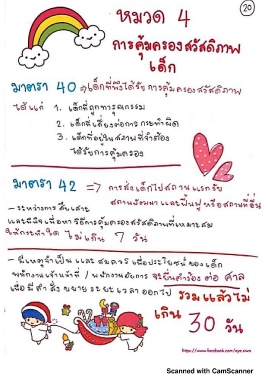 20
หมวด 4
การคุ้มครองสวัสดิภาพ
เด็ก
มาตรา 40 → เด็กที่พึงได้รับการคุ้มครองสวัสดิภาพ
ได้แก่ 1. เด็กที่ถูกทารุณกรรม
2. เด็กที่เสี่ยงต่อการกระทำผิด
3. เด็กที่อยู่ในสภาพที่จำต้อง
ได้รับการคุ้มครอง
มาตรา 42 ⇒ การส่งเด็กไปสถานแรกรับ
สถานพัฒนาและฟื้นฟู หรือสถานที่อื่น
- ระหว่างการสืบเสาะ
และพินิจเพื่อหาวิธีการคุ้มครองสวัสดิภาพที่เหมาะสม
ให้กระทำได้ ไม่เกิน 7 วัน
- มีเหตุจำเป็น และ สมควร เพื่อประโยชน์ ของเด็ก
พนักงานเจ้าหน้าที่ / พนักงานอัยการ จะยื่นคำร้อง ต่อ ศาล
เพื่อมีคำสั่ง ขยาย ระยะเวลา ออกไป รวมแล้วไม่
เกิน 30 วัน
Scanned with CamScanner